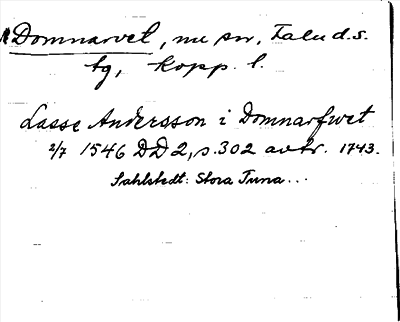 Domnarvet, nu sn, Falu d.s.
tg, Kopp. l.
Lasse Andersson i Domnarfwet
2/7 1546 DD 2, s. 302 avkr. 1743.
Sahlstedt: Stora Tuna...